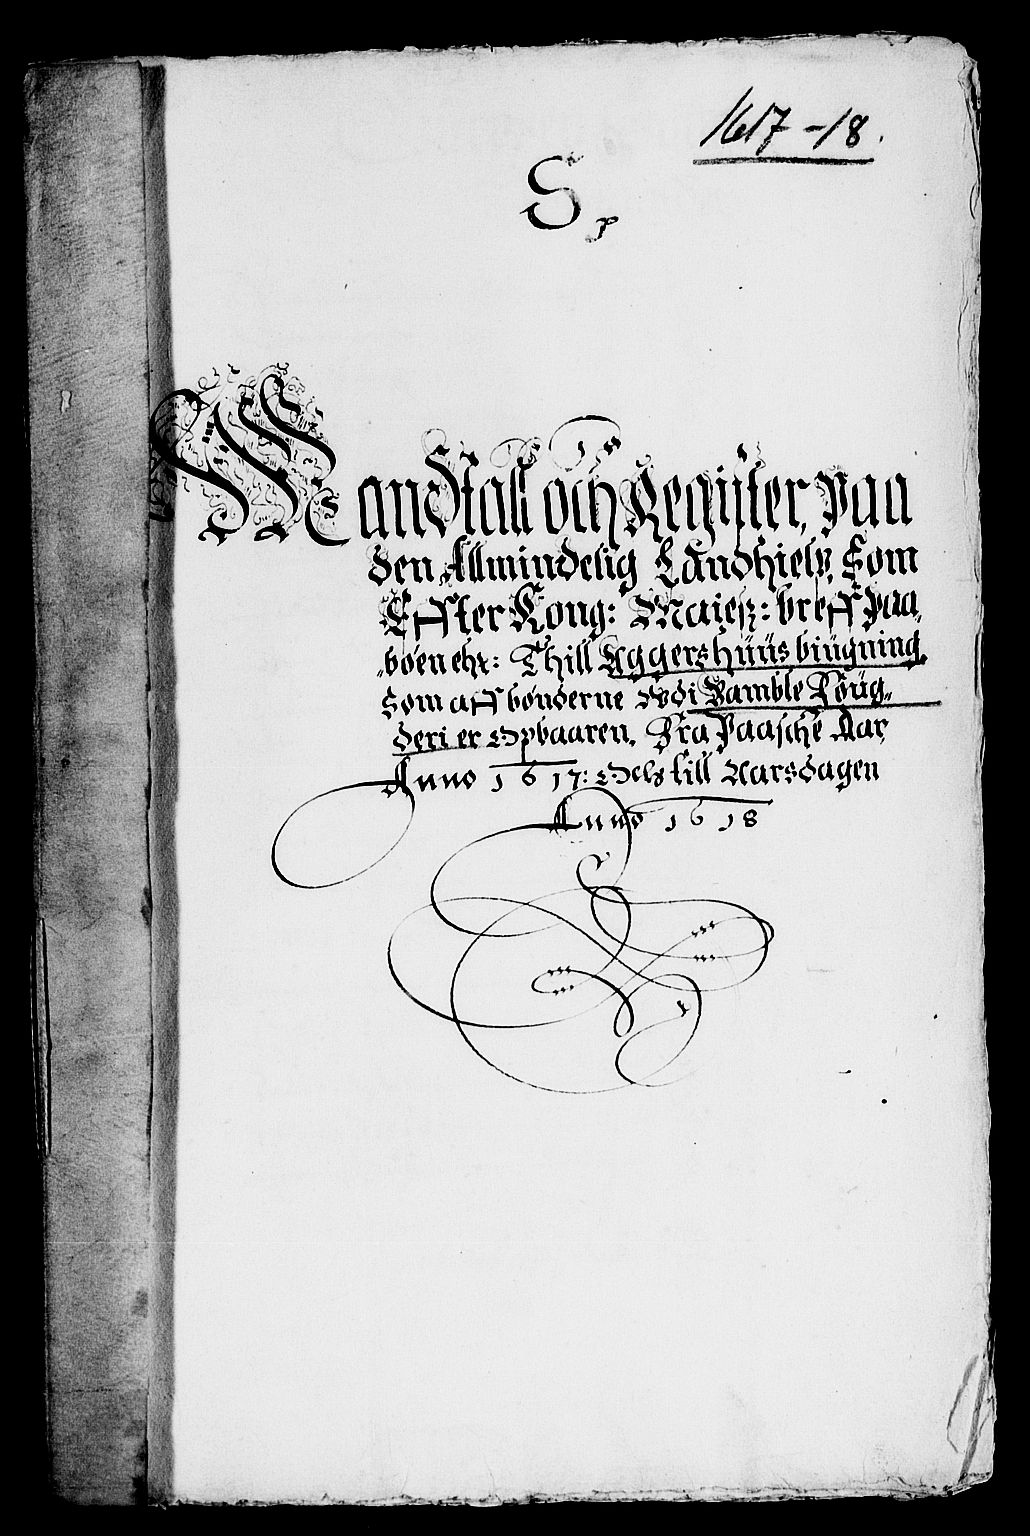 1617-18.
S
Mandtall och Register, paa
den Allmindelig Landhielp, Som
Effter Kong: Maiestz: breff paa,,
,,böen ehr: Thill Aggershuus biugning,
Som aff bönderne udi Bamble Foug,,
deri er Opbaaren. Fra Paasche Aar,
Anno 1617: Och till Aarsdagen
Anno 1618